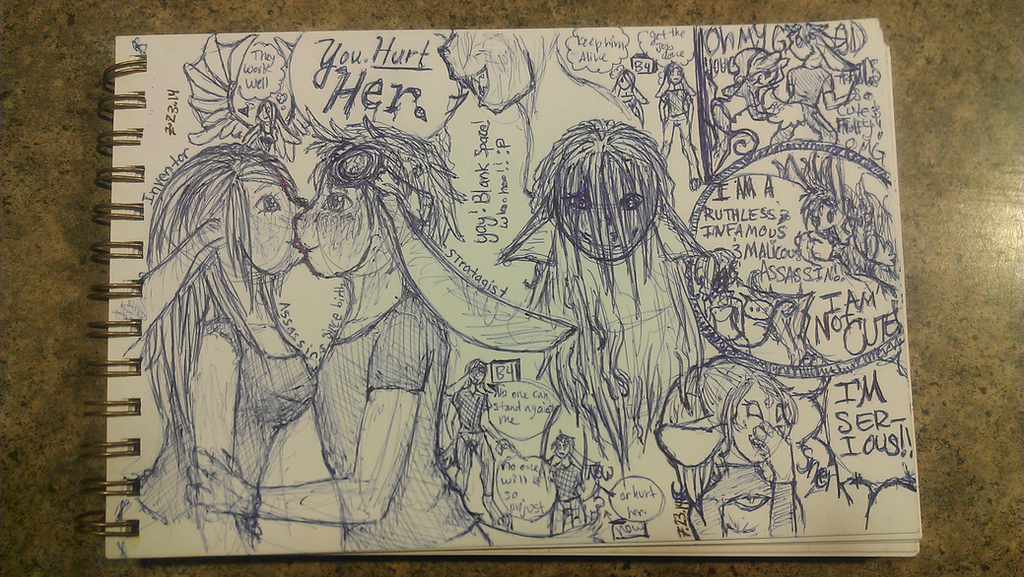 They
work
well
7-23-14
Inventor
You. Hurt
Her.
yay! Blank Space!
whoo hoo!! :P
Keep him
Alive
get the
job
done
B4
OH MY G
AD
YOUR
SO
CUTE!
OMG
I AM A
RUTHLESS
INFAMOUS
& MALICOUS
ASSASSIN!
I AM
NOT
CUTE
Stratagist
Assassin
since birth
B4
No one can
stand against
me
no one
will be
so
unjust
or hurt
her.
Now
I'M
SER-
IOUS!!